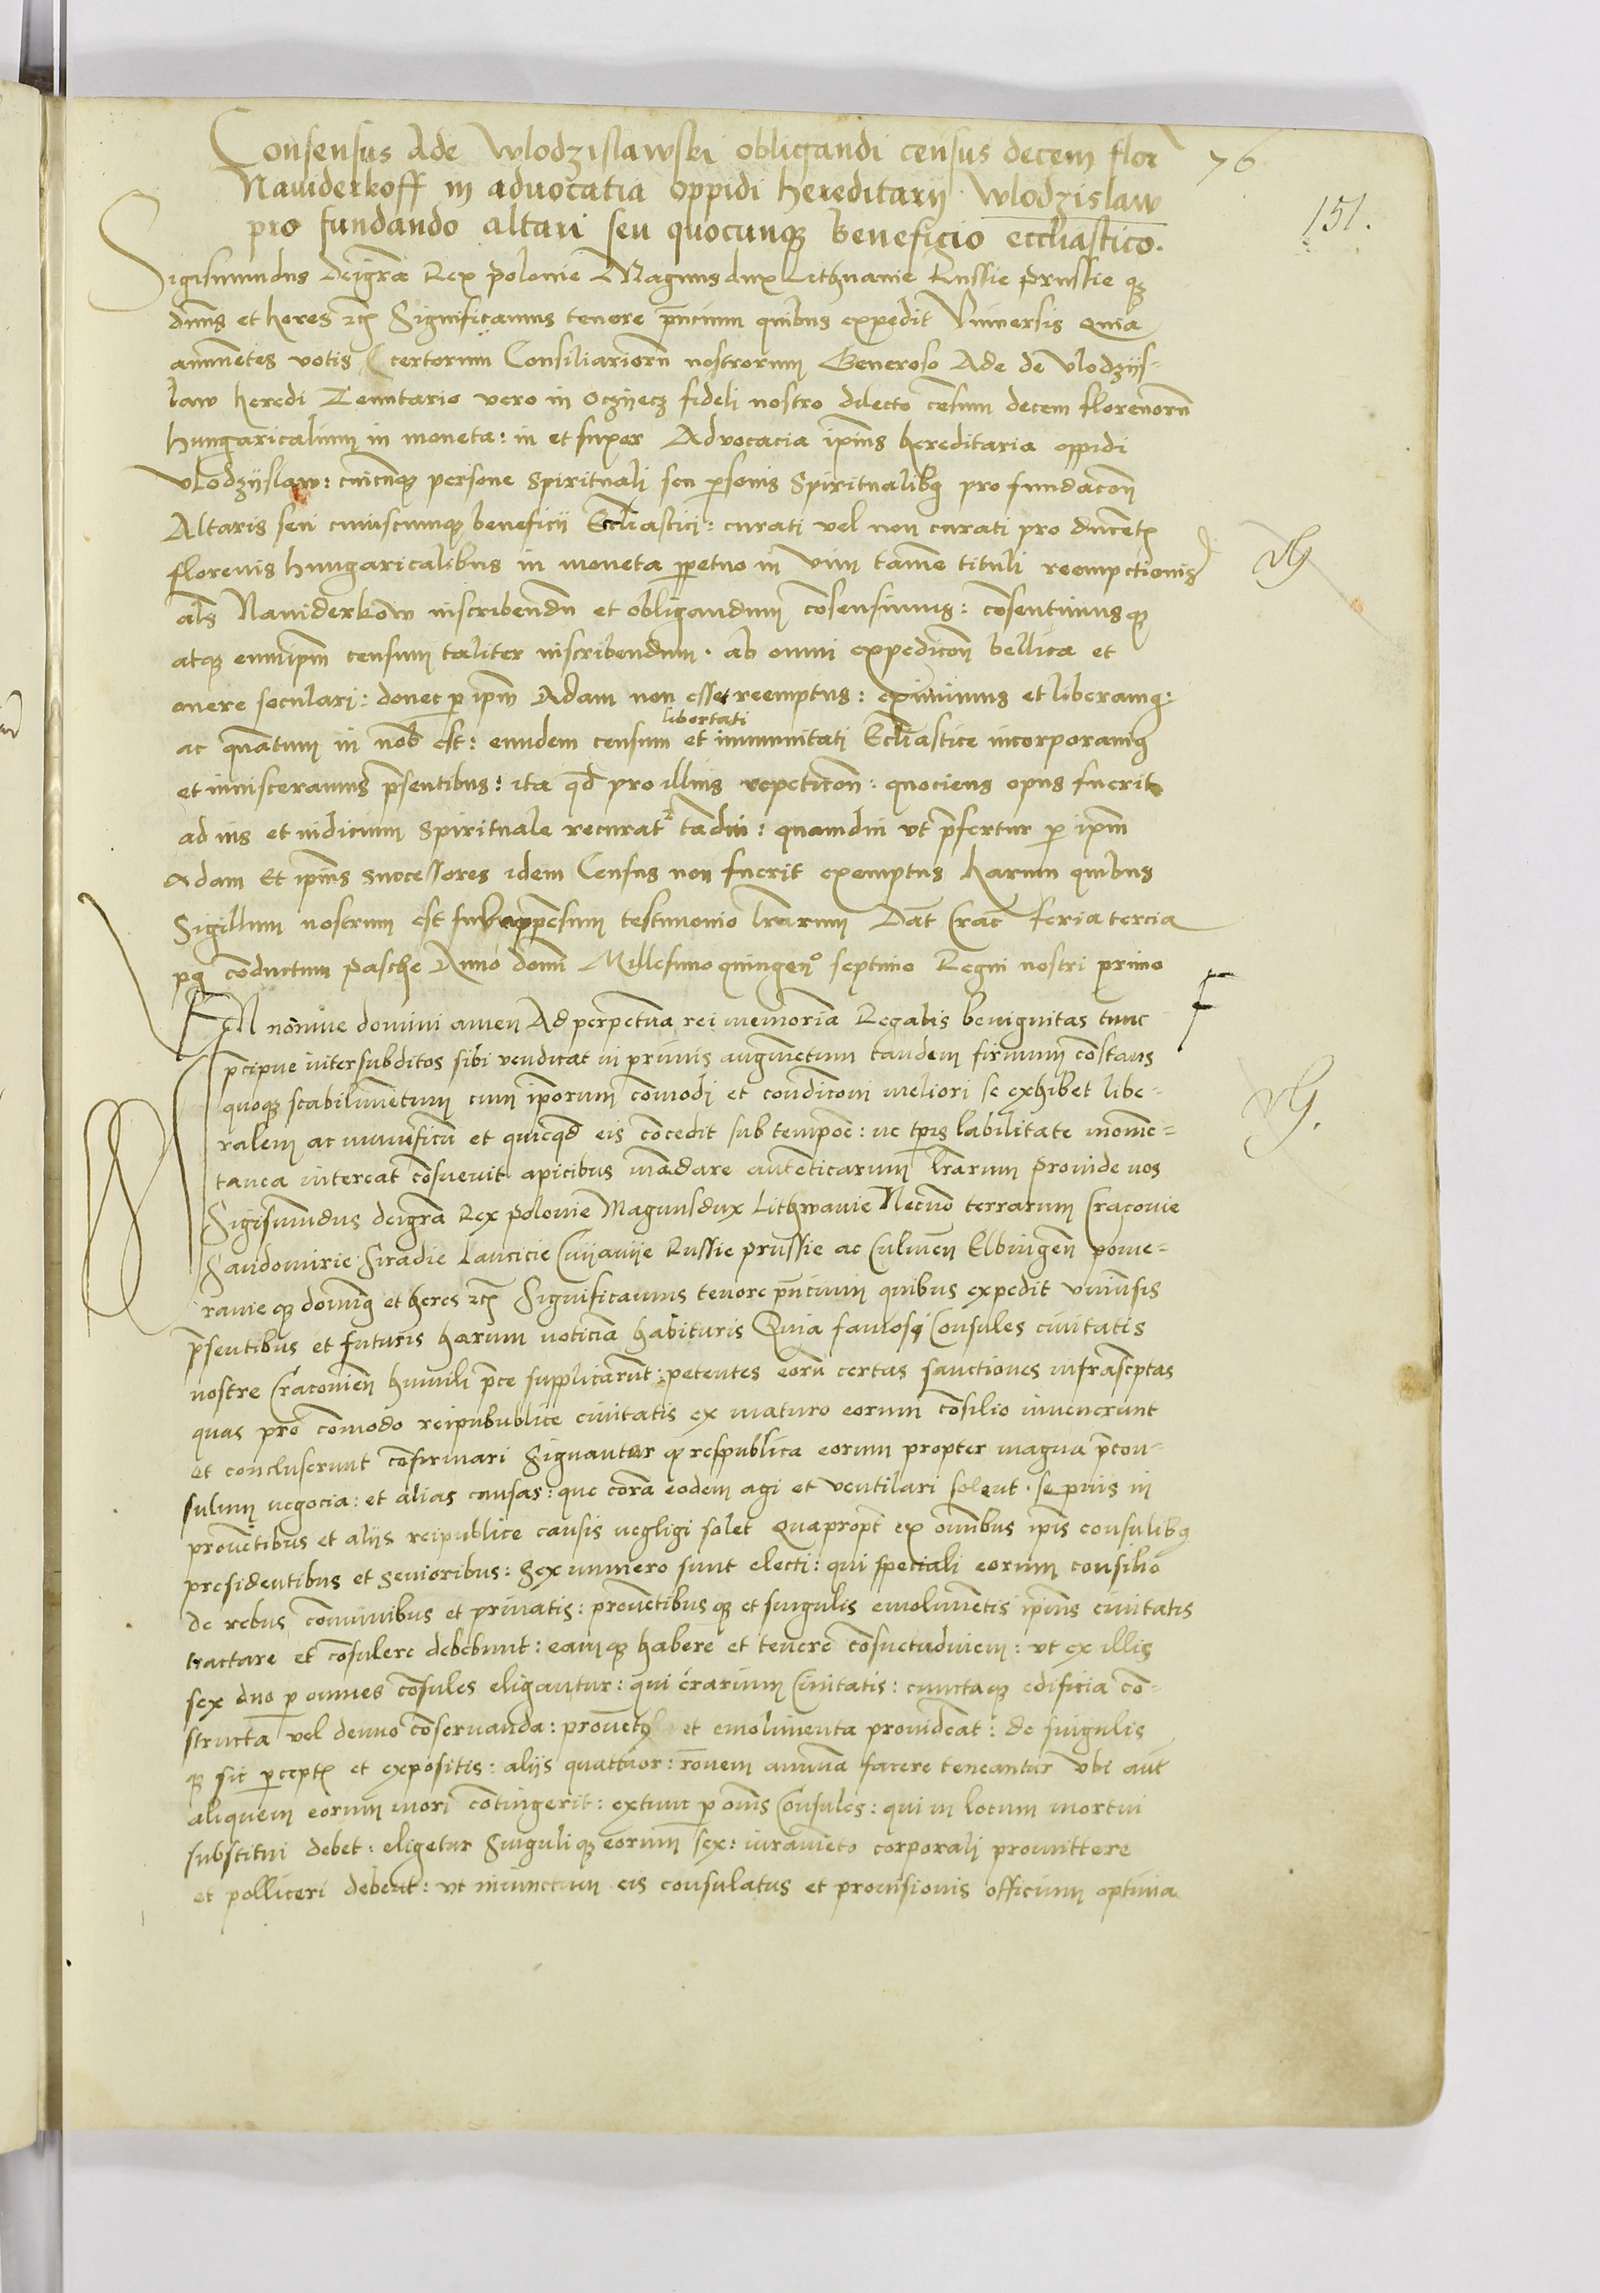 Consensus Ade Wlodzislawski obligandi census decem flor 76
Naviderkoff in advocatia oppidi hereditarij Wlodzislaw
151.
pro fundando altari seu quocunq beneficio eccliastico.
Sigismundus deigra Rex polonie Magnus dux Lithuanie Russie prussie q
dnus et heres Significamus tenore pncium quibus expedit Universis Quia
annuentes votis certorum Consiliarioru nostrorum Generoso Ade de Vlodzijs-
law heredi Tenutario vero in fideli nostro dilecto cesum decem florenoru
hungaricalium in moneta: in et super Advocacia ipius hereditaria oppidi
Vlodzijslaw: cuicuq persone spirituali seu psonis Spiritualibq pro fundacon
Altaris seu cuiuscumq beneficii Eccliastici: curati vel non curati pro ducet
florenis hungaricalibus in moneta ppetuo in Vim tame tituli reempctionis
als Naviderkow inscribendu et obligandum cosensimus: cosentimusq
atq eumipm censum taliter inscribendum. ab omni expedicon bellica et
onere seculari: donec p ipm Adam non esset reemptus: eximimus et liberamq:
libertati
ac quatum in nob est: eundem censum et immunitati Eccliastice incorporamq
et inuisceramus psentibus: ita qd pro illius repeticon: quociens opus fuerit
ad ius et iudicium spirituale recurat tadiu: quamdiu ut pfertur p ipm
Adam Et ipius successores idem Census non fuerit exemptus harum quibus
Sigillum nostrum est subappesum testimonio lrarum Dat Crac feria tercia
pq coductum pasche Anno domi Millesimo quingeno septimo Regni nostri primo
IN nomine domini amen Ad perpetua rei memoria Regalis benignitas tunc
pcipue inter subditos sibi vendicat in primis augmetum tandem firmum costans
quoq stabilimetum cum iporum comodi et condiconi meliori se exhibet libe-
ralem ac munificu et quicqd eis cocedit sub tempoe: ne tpis labilitate mome-
tanea intereat cosuevit apicibus madare autenticarum lrarum Proinde nos
Sigismundus deigra Rex polonie Magnusdux Lithwanie Necno terrarum Cracovie
Sandomirie Siradie Lancicie Cuijavije Russie prussie ac Culmen Elbingen pome-
ranie q dominq et heres Significamus tenore pncium quibus expedit uniusis
psentibus et futuris harum noticia habituris Quia famosi Consules civitatis
nostre Cracovien humili pce supplicarut: petentes eoru certas sanctiones infrascptas
quas pro comodo reipubublice civitatis ex maturo eorum cosilio invenerunt
et concluserunt cofirmari Signanter q respublica eorum propter magna pcon-
sulum negocia: et alias causas: que cora eodem agi et ventilari solent. sepius in
provetibus et aliis reipublice causis negligi solet Quapropt ex omibus ipis consulibq
presidentibus et senioribus: sex numero sunt electi: qui speciali eorum consilio
de rebus comunibus et privatis: provetibusq et singulis emolumetis ipius civitatis
tractare et cosulere debebunt: eamq habere et tenere cosuetudinem: ut ex illis
sex duo p omnes cosules eligantur: qui erarium Civitatis: cunctaq edificia co-
structa vel denuo coservanda: provet et emolimenta provideat: de singulis
q sic pcept et expositis: aliis quattuor: ronem annua facere teneantur Ubi aut
aliquem eorum mori cotingerit: extunc p oms Consules: qui in locum mortui
substitui debet: eligetur Singuliq eorum sex: iurameto corporali promittere
et polliceri debent: ut iniunctum eis consulatus et provisionis officium optima